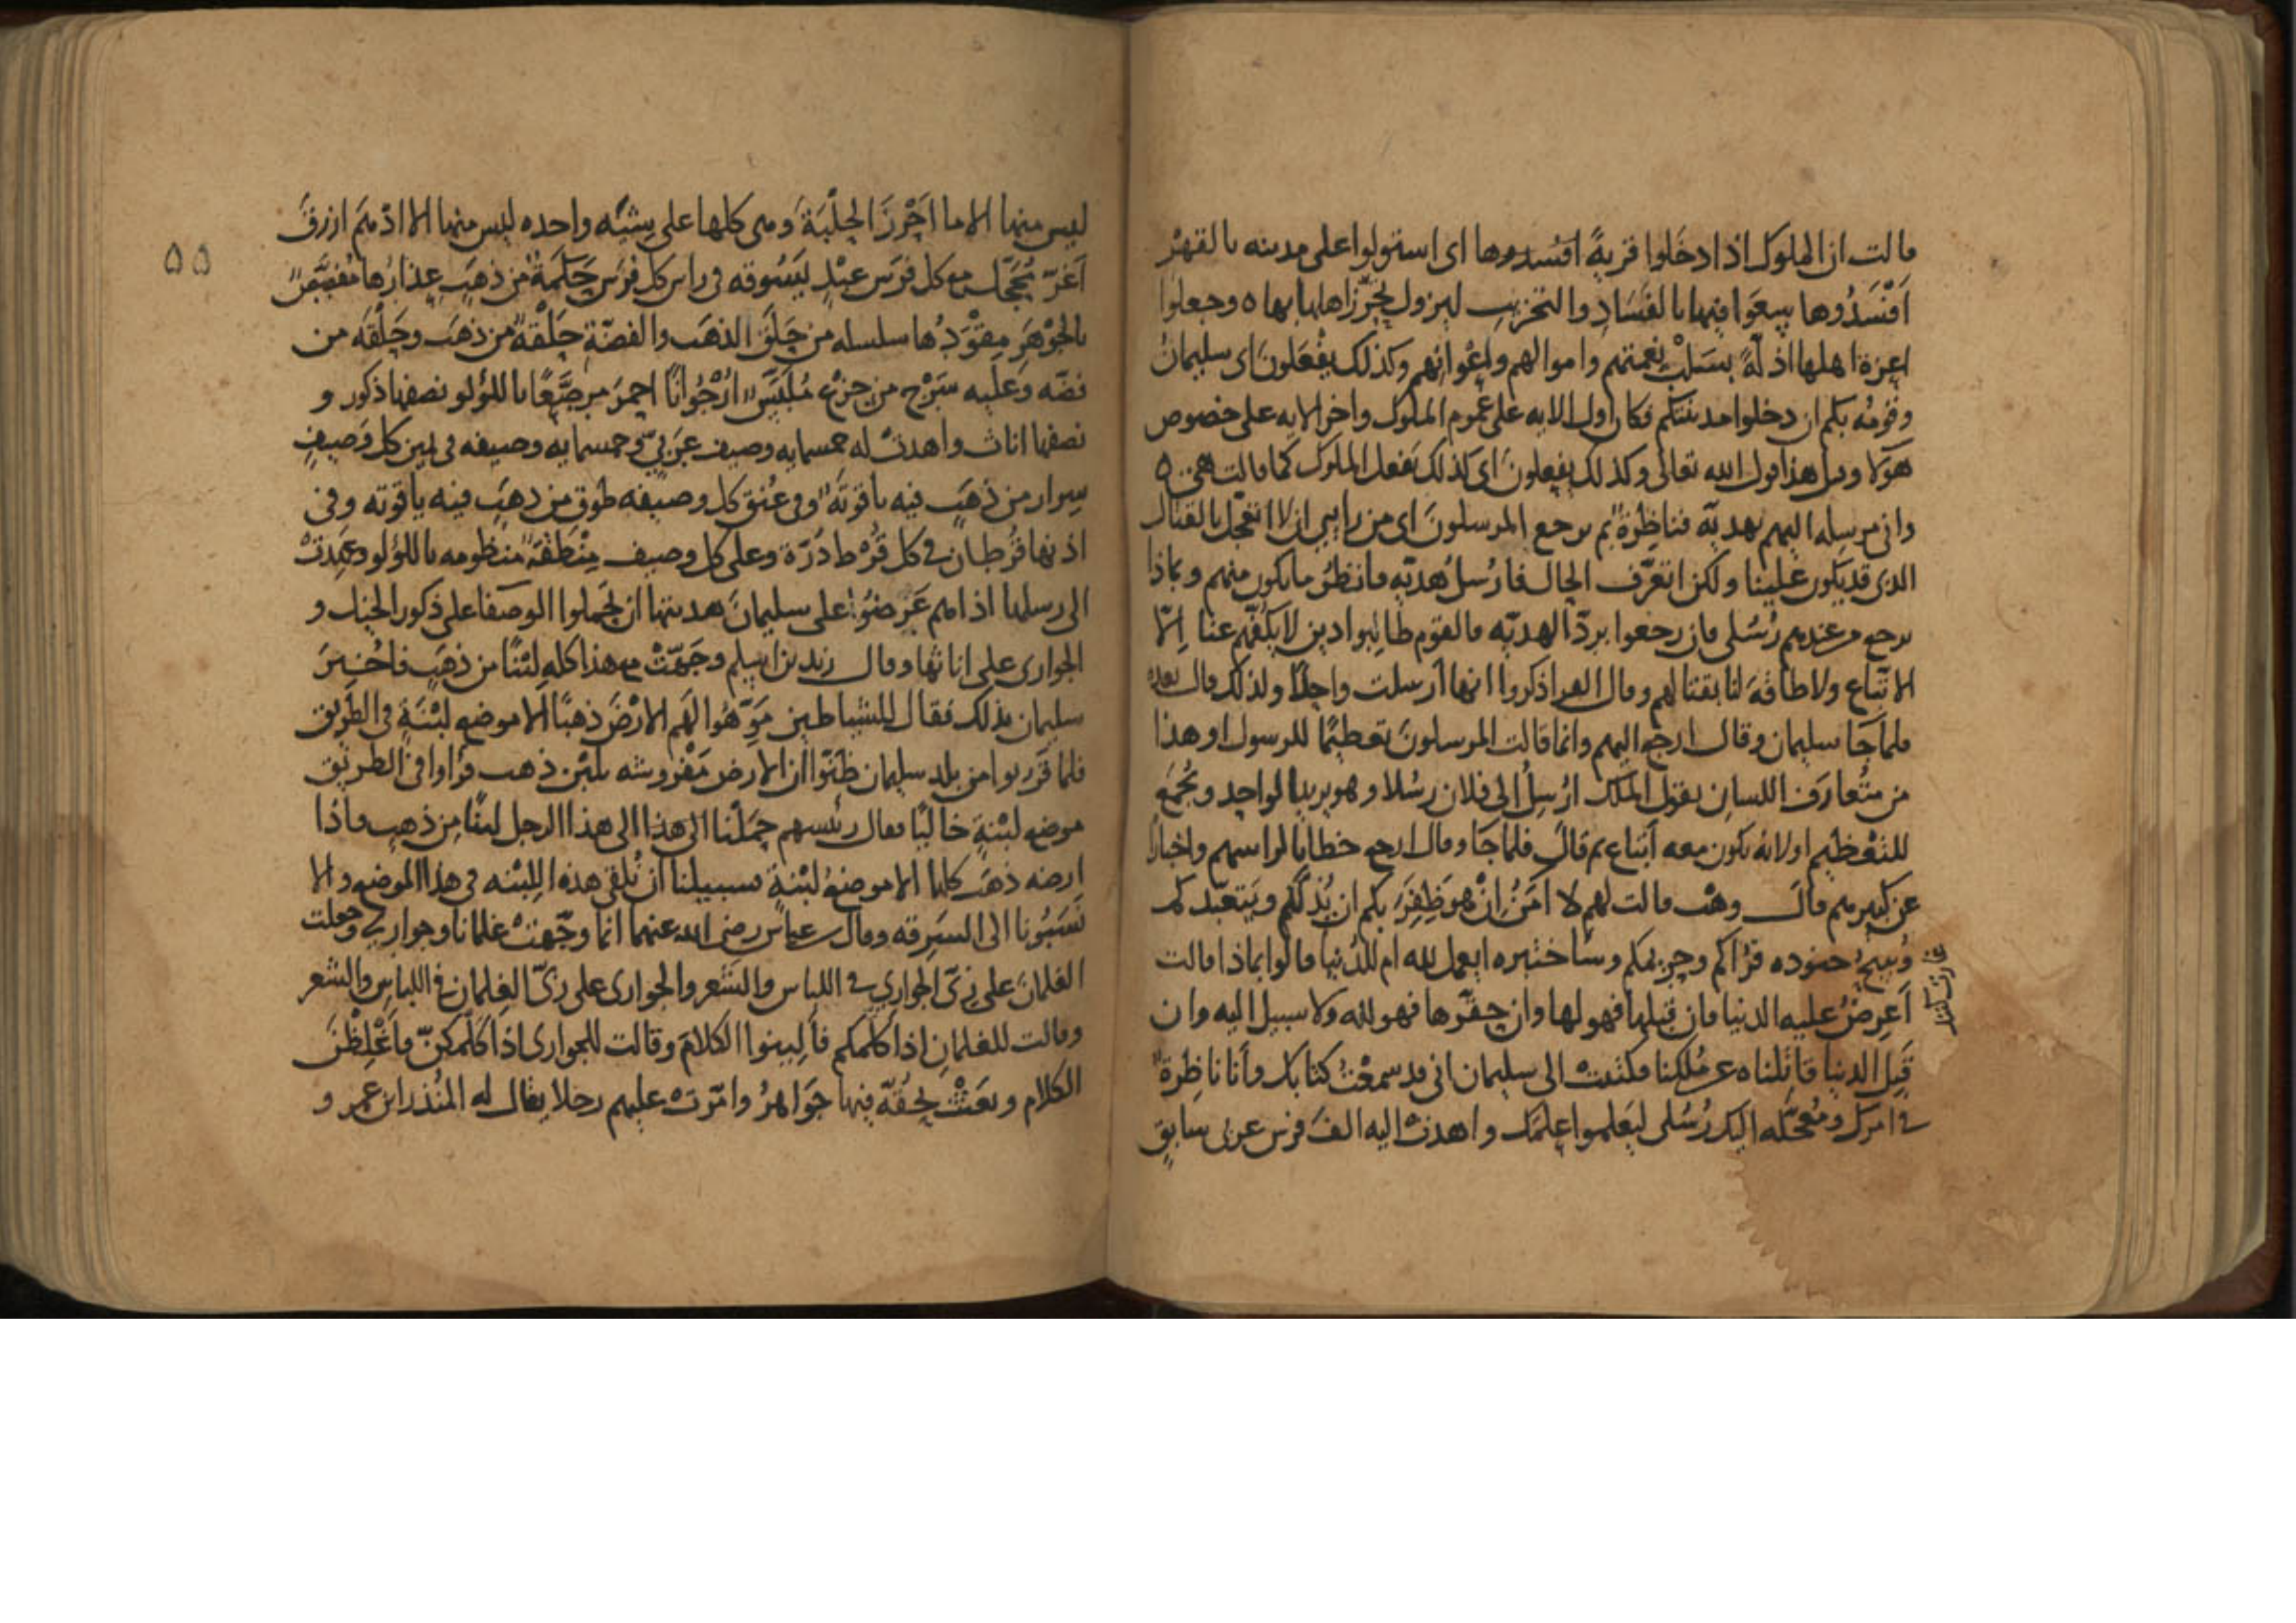 قالت ان الملوك اذا دخلوا قرية افسدوها اى استولوا على مدينه بالقهر
اَفْسَدُوها سعوا فيها بالفساد والتخريب ليزول تحرز اهلها بها ه وجعلوا
اعزة اهلها اذلة بسلب نعمتهم واموالهم واعوانهم وكذلك يفعلون اى سليمان
وقومه بكم ان دخلوا مدينتكم فكان اول الايه على عموم الملوك واخر الايه على خصوص
هولا وقيل هذا قول الله تعالى وكذلك يفعلون اى كذلك تفعل الملوك كما قالت هى ه
وانى مرسله اليهم بهديّه فناظرة بم يرجع المرسلون اى من رايى ان لا اتعجّل بالقتال
الذى قد يكون علينا ولكن اتعرّف الحال فارسل هديّه فانتظر ما يكون منهم وبماذا
يرجع من عندهم رُسُلى فان رجعوا بردّ الهديّه فالقوم طالبوا دين لا يكفّهم عنا الا
الاتّباع ولا طاقة لنا بقتالهم وقال الفرا ذكروا انها ارسلت واحدًا ولذلك قال بعده
فلما جَا سليمان وقال ارجع اليهم وانما قالت المرسلون تعظيمًا للرسول او هذا
من متعارف اللسان يقول الملك ارسل الى فلان رسُلا وهو يريد الواحد وتجمع
للتعظيم او لانه يكون معه اتباع ثم قال فلما جَا وقال ارجع خطابا لراسهم واخبارًا
عن كبيرهم قال وهب قالت لهم لا امن ان هو ظفر بكم ان يُذلّكم ويتعبّدكم
ويبيح جنوده قراكم وحريمكم وساختبره ايعمل لله ام للدنيا قالوا بماذا قالت
اَعرِضُ عليه الدنيا فان قبلها فهو لها وان حقّرها فهو لله ولا سبيل اليه وان
قَبِل الدنيا قاتلناه عن مُلكنا فكتبت الى سليمان انى قد سمعتُ كتابك وأنا ناظرة
فى امرك ومُعجّله اليك رُسُلى ليعلموا علمك واهدت اليه الف فرس عربى سابق
ليس منها الا ما احرز الحلبة وهى كلها على شيه واحده ليس منها الا ادهم ازرق
اَغرّ مُحجّل مع كل فرس عبد يسوقه فى راس كل فرس حَكَمةٌ من ذهب عذارها مُفصّص
بالجوهر مِقْوَدُها سلسله من حلق الذهب والفضّة حلقة من ذهب وحلقه من
فضّه وعليه سرج من جزع مُلبّس ارجوانًا احمر مرصّعًا باللؤلو نصفها ذكور و
نصفها اناث واهدت له خمسمايه وصيف عربى وخمسمايه وصيفه فى يمين كل وصيف
سوار من ذهب فيه ياقوته وفى عنق كل وصيفه طوق من ذهب فيه ياقوته وفى
اذنها قُرطان فى كل قُرط دُرّة وعلى كل وصيف مِنْطقة منظومه باللؤلو وعَمِدتْ
الى رسلها اذا هم عَرضُوا على سليمان هديتها ان تحملوا الوصفا على ذكور الخيل و
الجوارى على اناثها وقال زيد بن اسلم وجهّتْ مع هذا كله لبنًا من ذهب فاُخبر
سليمان بذلك فقال للشياطين مَوّهُوا لهم الارض ذهبًا الا موضع لبنة فى الطريق
فلما قربوا من بلد سليمان ظنّوا ان الارض مفروشه بلبن ذهب فراوا فى الطريق
موضع لبنةٍ خاليًا فقال رئيسهم حملنا الى هذا الى هذا الرجل لبنًا من ذهب فاذا
ارضه ذهب كلها الا موضع لبنةٍ سبيلنا ان نلقى هذه اللبنه فى هذا الموضع والا
نَسَبُونا الى السرقه وقال عباس رضى الله عنهما انما وجّهت غلمانا وجوارى وجعلت
الغلمان على زىّ الجوارى فى اللباس والشعر والجوارى على زىّ الغلمان فى اللباس والشعر
وقالت للغلمان اذا كلّمكم فأَلِينوا الكلام وقالت للجوارى اذا كلّمكنّ فاَغلِظنَ
الكلام وبعثت بحُقّة فيها جواهر وامّرت عليهم رجلا يقال له المنذر ابن عمرو و
٥٥